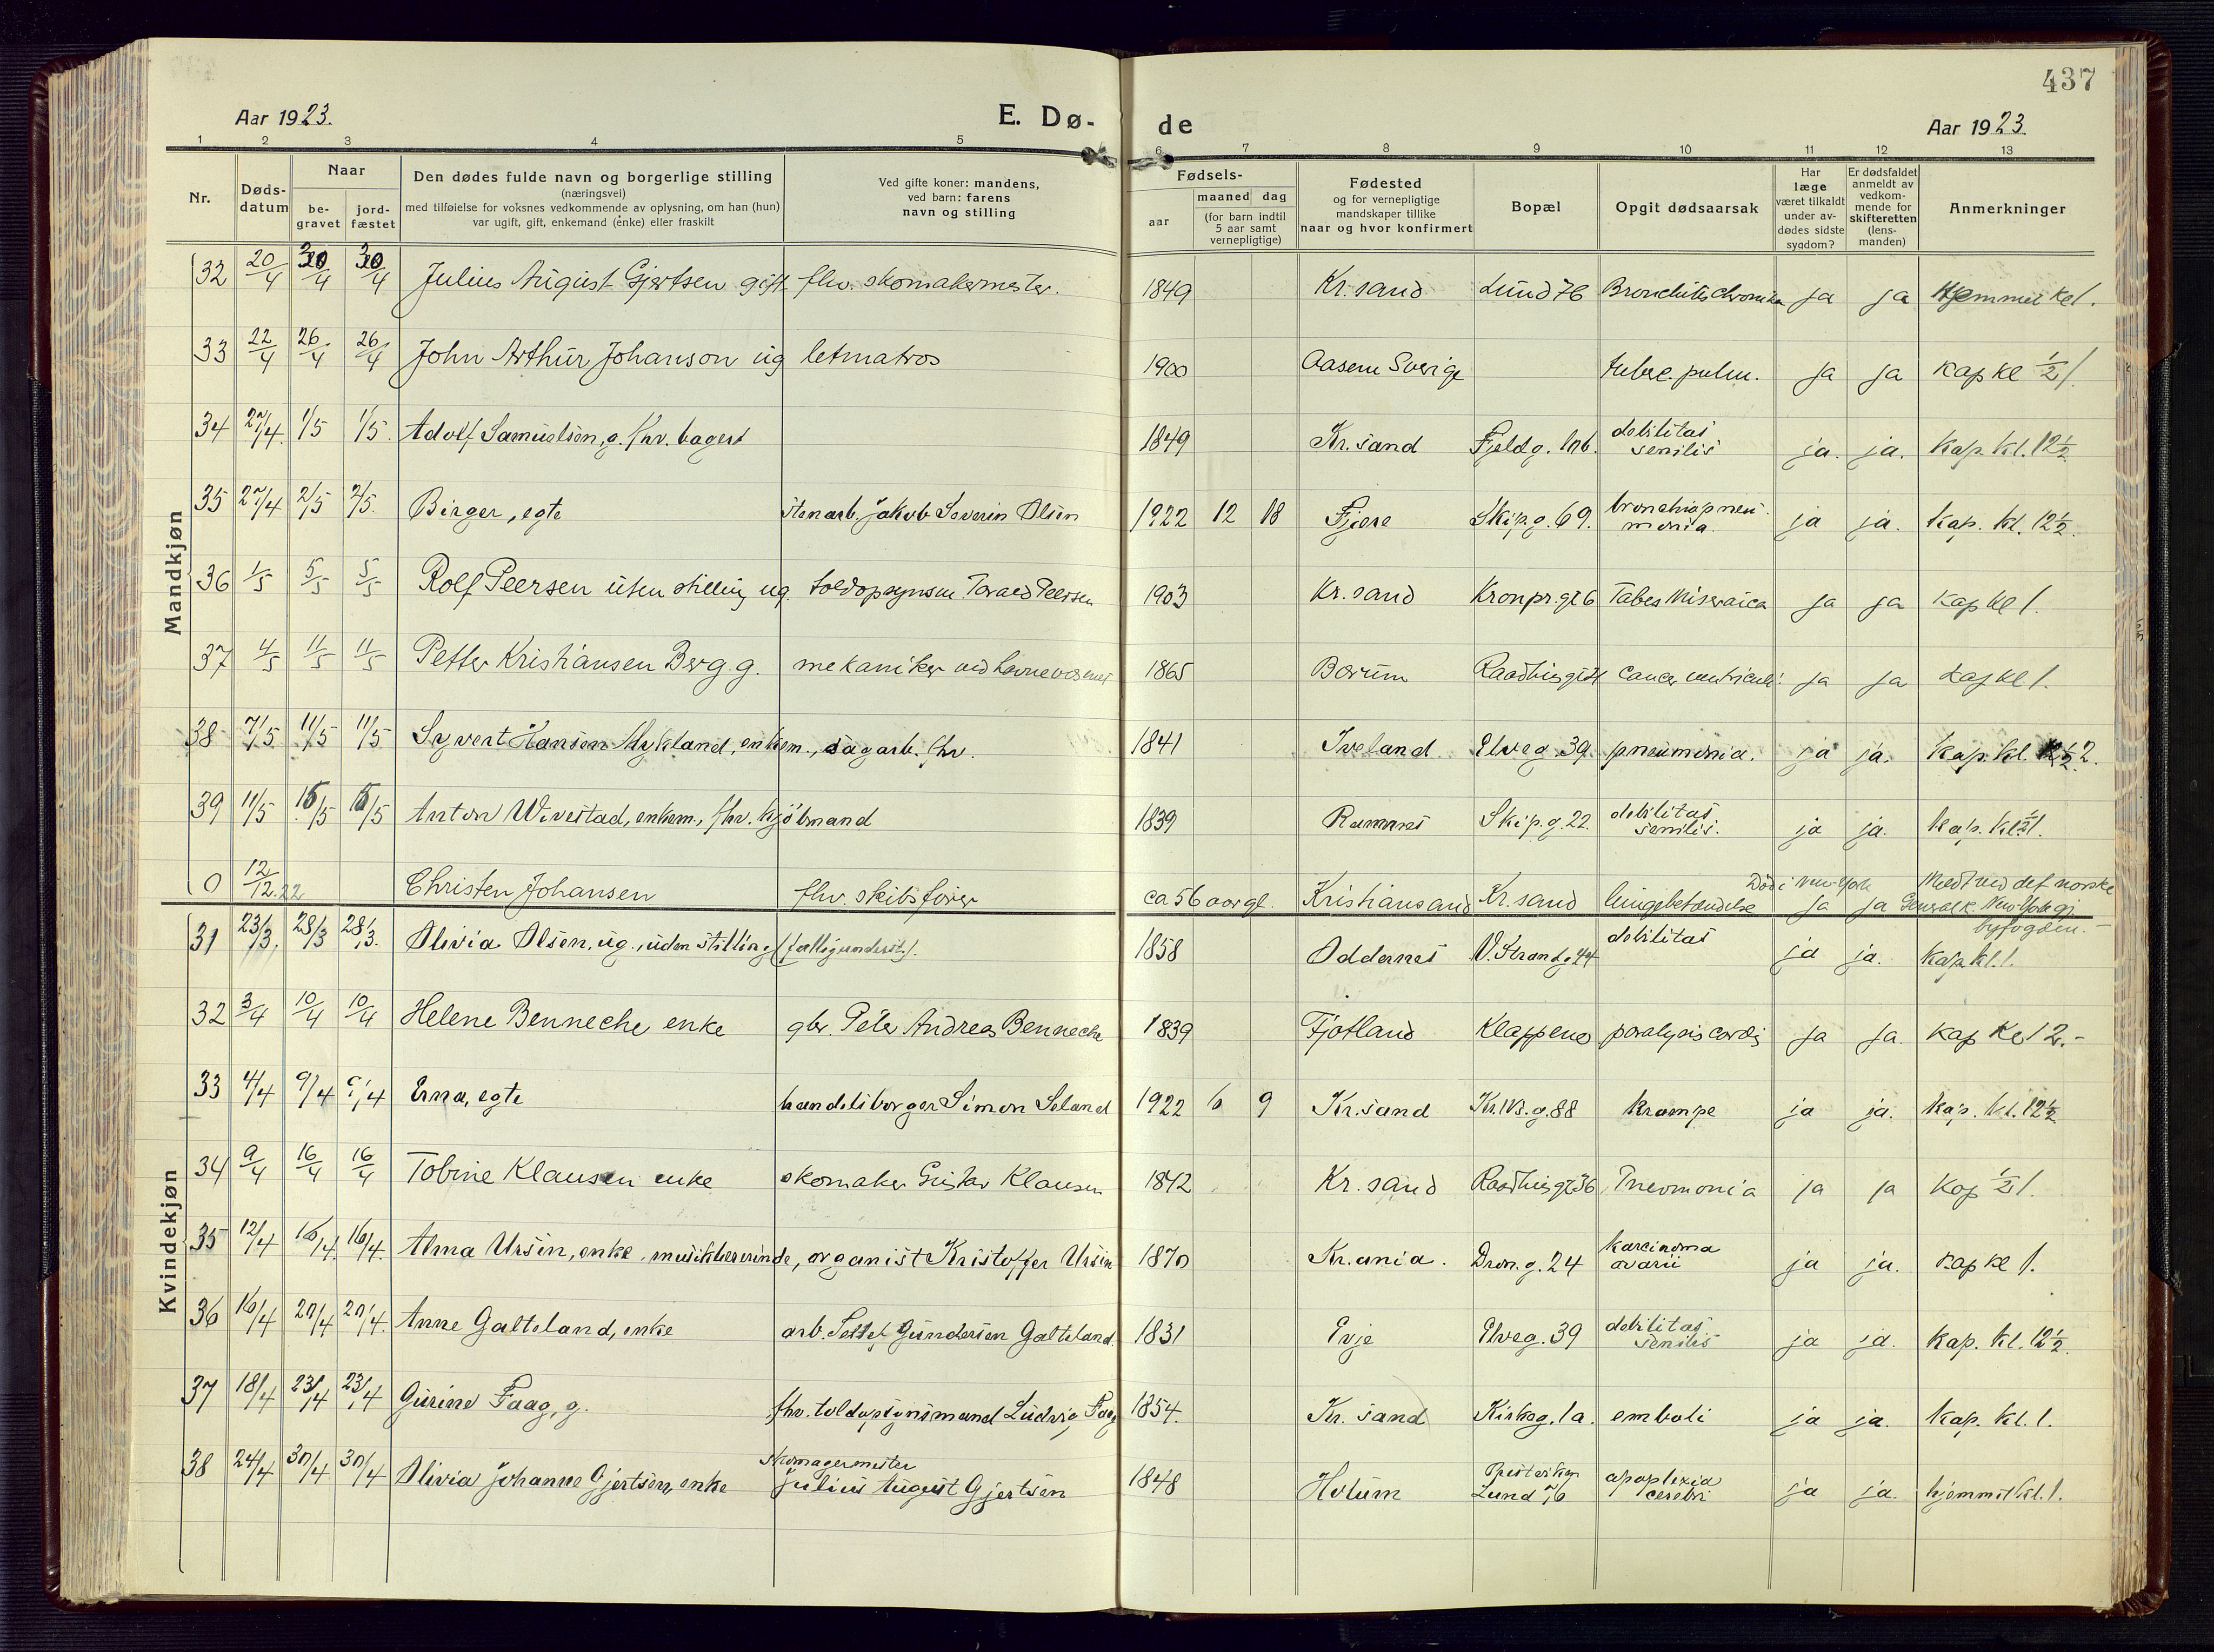 437
Aar 1923.
E. Dø-
de
Aar 1923.
1 2 3 4 5 6 7 8 9 10 11 12 13
Nr.
Døds-
datum
Naar
be-
gravet
jord-
fæstet
Den dødes fulde navn og borgerlige stilling
(næringsvei)
med tilføielse for voksnes vedkommende av oplysning, om han (hun)
var ugift, gift, enkemand (enke) eller fraskilt
Ved gifte koner: mandens,
ved barn: farens
navn og stilling
Fødsels-
aar
maaned dag
(for barn indtil
5 aar samt
vernepligtige)
Fødested
og for vernepligtige
mandskaper tillike
naar og hvor konfirmert
Bopæl
Opgit dødsaarsak
Har
læge
været tilkaldt
under av-
dødes sidste
sygdom?
Er dødsfaldet
anmeldt av
vedkom-
mende for
skifteretten
(lens-
manden)
Anmerkninger
Mandkjøn
32 20/4 30/4 30/4 Julius August Gjertsen gift fhv. skomakermester. 1849 Kr.sand Lund 76 Bronchitis chronica ja ja Hjemmet kl 1.
33 22/4 26/4 26/4 John Arthur Johanson ug letmatros 1900 Aasem Sverige tuberc. pulm. ja ja Kap kl 1/2 1.
34 27/4 1/5 1/5 Adolf Samuelsen, g. fhv. bagest 1849 Kr.sand Fjeldg. debilitas senilis ja. ja. Kap. kl. 12 1/2
35 27/4 2/5 2/5 Birger, egte Stenarb. Jakob Severin Olsen 1922 12 18 Fjære Skipg. 69. bronchiapneumonia. ja ja. Kap. kl. 12 1/2.
36 1/5 5/5 5/5 Rolf Peersen uten stilling ug. toldopsynsm. Peersen 1903 Kr.sand Kronpr.gt 6 Tabes Miseraica ja ja Kap kl 1.
37 4/5 11/5 11/5 Petter Kristiansen Berg g. mekaniker ved havnevæsenet 1865 Bærum Raadhusgt cancer ventriculi ja ja Kap kl 1.
38 7/5 11/5 11/5 Syvert Hansen Mykland, enkem., sagarb. fhv. 1841 Iveland Elveg. 39. pneumonia. ja ja. Kap. kl. 2.
39 11/5 15/5 15/5 Anton Wivestad, enkem., fhv. kjöbmand 1839 Ramnes Skip.g. 22. debilitas senilis. ja ja. Kap. kl 1/2 1.
0 12/12.22 Christen Johansen fhv. skibsfører ca 56 aar gl. Kristiansand Kr.sand lungebetændelse Død i New-York ja ja Meldt ved det norske Generalk. New-York gj. byfogden.
Kvindekjøn
31 23/3. 28/3 28/3. Olivia Olsen, ug., uden stilling (fattigunderst.). 1858 Oddernes V. Strandg. 44 debilitas ja ja. Kap. kl. 1.
32 3/4 10/4 10/4 Helene Benneche enke gbr. Peter Andreas Benneche 1839 Fjotland Klappene paralysis cordis ja ja. Kap kl 12.-
33 4/4 9/4 9/4 Erna, egte handelsborger Simon Seland 1922 6 9 Kr.sand Kr.IVs.g. 88 krampe ja ja. Kap. kl. 12 1/2
34 9/4 16/4 16/4 Tobine Klausen enke skomaker Gustav Klausen 1842 Kr.sand Raadhusgt 36 Pneumonia ja ja Kap 1/2 1.
35 12/4 16/4. 16/4. Alma Ursin, enke, musiklærerinde, organist Kristoffer Ursin 1870 Kr.ania. Dron.g. 24 karcinoma ovarii ja ja. Kap kl 1.
36 16/4 20/4 20/4. Anne Galteland, enke arb. Gundersen Galteland. 1831 Evje Elveg. 39 debilitas senilis ja ja. Kap. kl. 12 1/2.
37 18/4 23/4 23/4 Gurine Faag, g. fhv. toldopsynsmand Ludvig Faag 1854. Kr.sand Kirkeg. 1a. emboli ja ja. Kap. kl. 1.
38 24/4 30/4 30/4 Olivia Johanne Gjertsen, enke Skomagermester Julius August Gjertsen 1848 Holum Lund 76 apoplexia cerebri ja ja. hjemmet kl. 1.